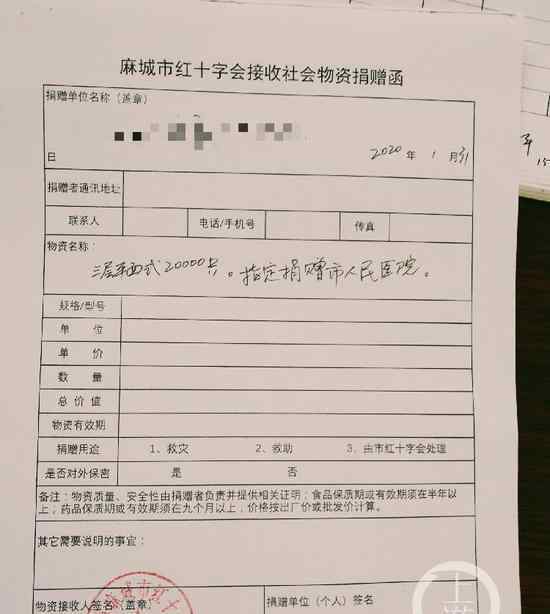 麻城市红十字会接收社会物资捐赠函
捐赠单位名称（盖章）
日 2020 年 1 月 31
捐赠者通讯地址
联系人 电话/手机号 传真
物资名称：
20000只。指定捐赠市人民医院。
规格/型号
单 位
单 价
数 量
总 价 值
物资有效期
捐赠用途 1、救灾 2、救助 3、由市红十字会处理
是否对外保密 是 否
备注：物资质量、安全性由捐赠者负责并提供相关证明；食品保质期或有效期须在半年以
上，药品保质期或有效期须在九个月以上，价格按出厂价或批发价计算。
其它需要说明的事宜：
物资接收人签名（盖章） 捐赠单位（个人）签名
城市红十
15